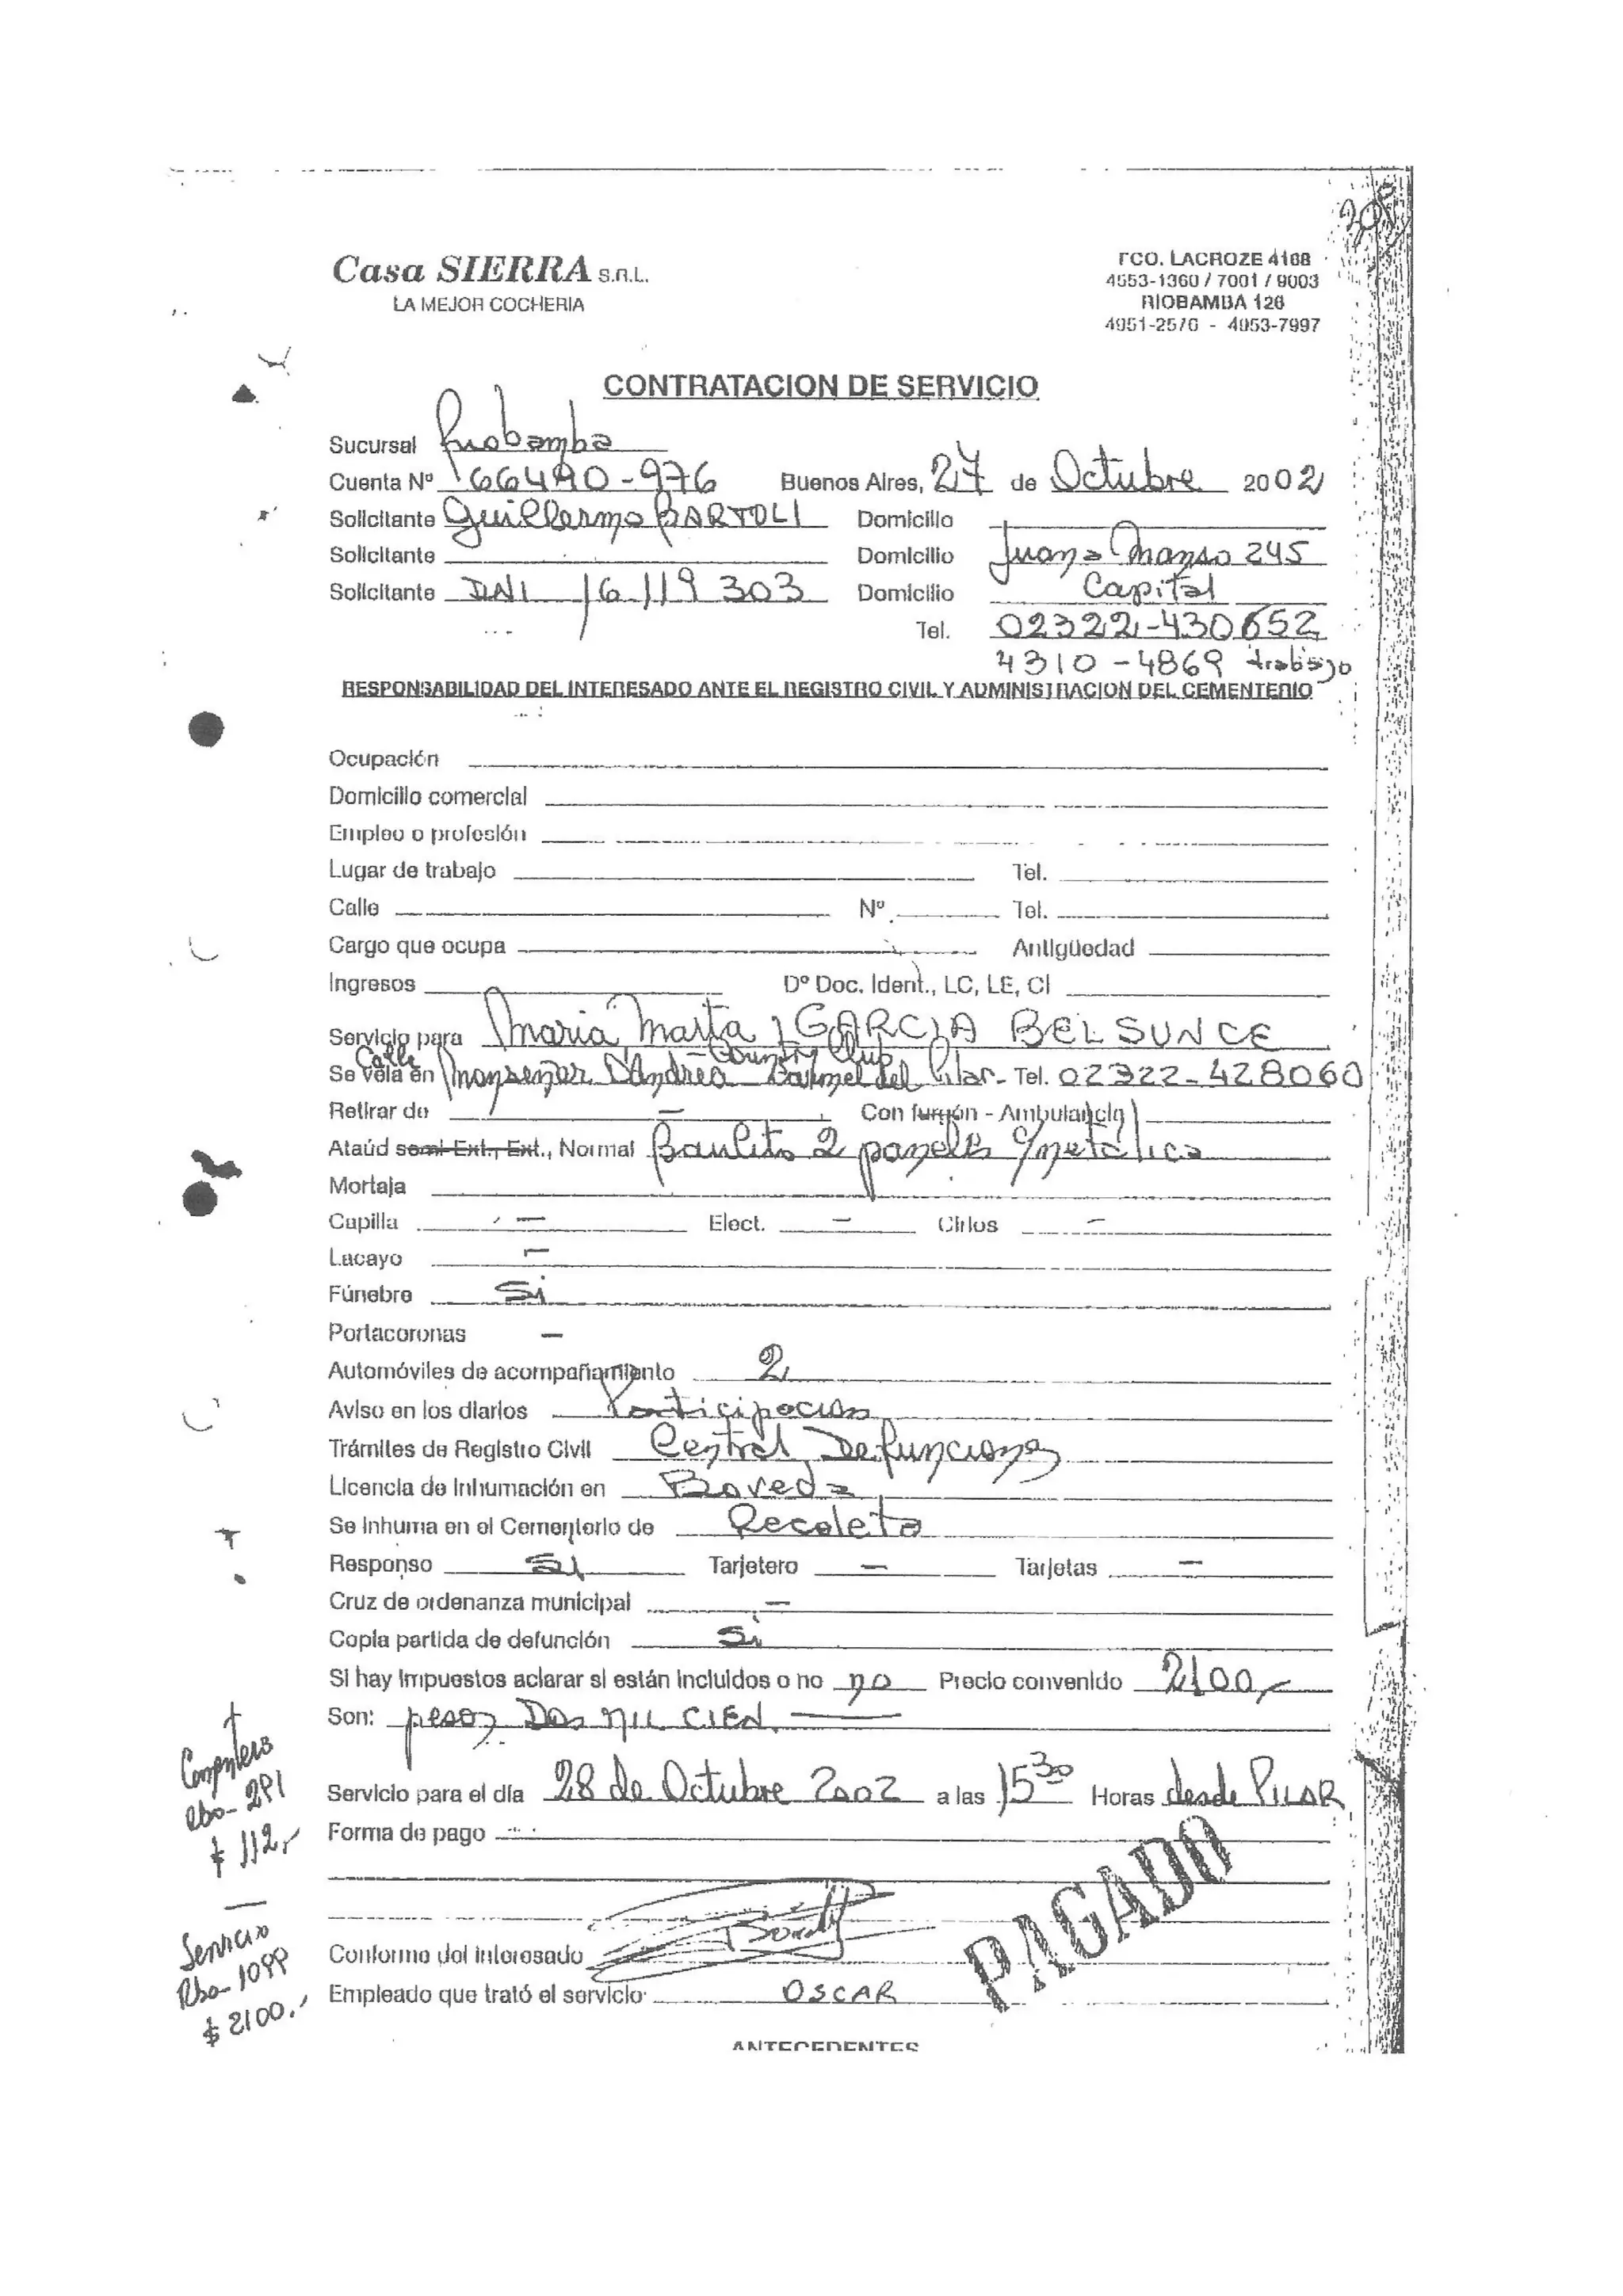 208
Casa SIERRA S.R.L.
LA MEJOR COCHERIA
FCO. LACROZE 4168
4553-1360 / 7001 / 9003
RIOBAMBA 126
4951-2576 - 4953-7997
CONTRATACION DE SERVICIO
Sucursal Riobamba
Cuenta Nº 66490-976 Buenos Aires, 27 de Octubre 2002
Solicitante Guillermo BARTOLI Domicilio
Solicitante Domicilio Juana Manso 245
Solicitante DNI 16 119 303 Domicilio Capital
Tel. 02322-430652
4310-4869 trabajo
RESPONSABILIDAD DEL INTERESADO ANTE EL REGISTRO CIVIL Y ADMINISTRACION DEL CEMENTERIO
Ocupación
Domicilio comercial
Empleo o profesión
Lugar de trabajo Tel.
Calle Nº Tel.
Cargo que ocupa Antigüedad
Ingresos Dº Doc. Ident., LC, LE, CI
Servicio para Maria Marta GARCIA BELSUNCE
Calle - Country Club
Se vela en Monseñor D'Andrea Carmel del Pilar - Tel. 02322-428060
Retirar de — Con furgón - Ambulancia
Ataúd semi-Ext., Ext., Normal Baulito 2 paneles c/metálica
Mortaja
Capilla — Elect. — Cirios —
Lacayo —
Fúnebre Si
Portacoronas —
Automóviles de acompañamiento 2
Aviso en los diarios Participacion
Trámites de Registro Civil Central Defunciones
Licencia de Inhumación en Boveda
Se Inhuma en el Cementerio de Recoleta
Responso Si Tarjetero — Tarjetas —
Cruz de ordenanza municipal —
Copia partida de defunción Si
Si hay Impuestos aclarar si están incluidos o no no Precio convenido 2100,-
Son: pesos DOS MIL CIEN.
Servicio para el día 28 de Octubre 2002 a las 15 30 Horas desde PILAR
Forma de pago
Conforme del interesado
Empleado que trató el servicio: OSCAR
PAGADO
Cementerio
Rbo- 291
$ 112,-
Servicio
Rbo- 1099
$ 2100.-
ANTECEDENTES